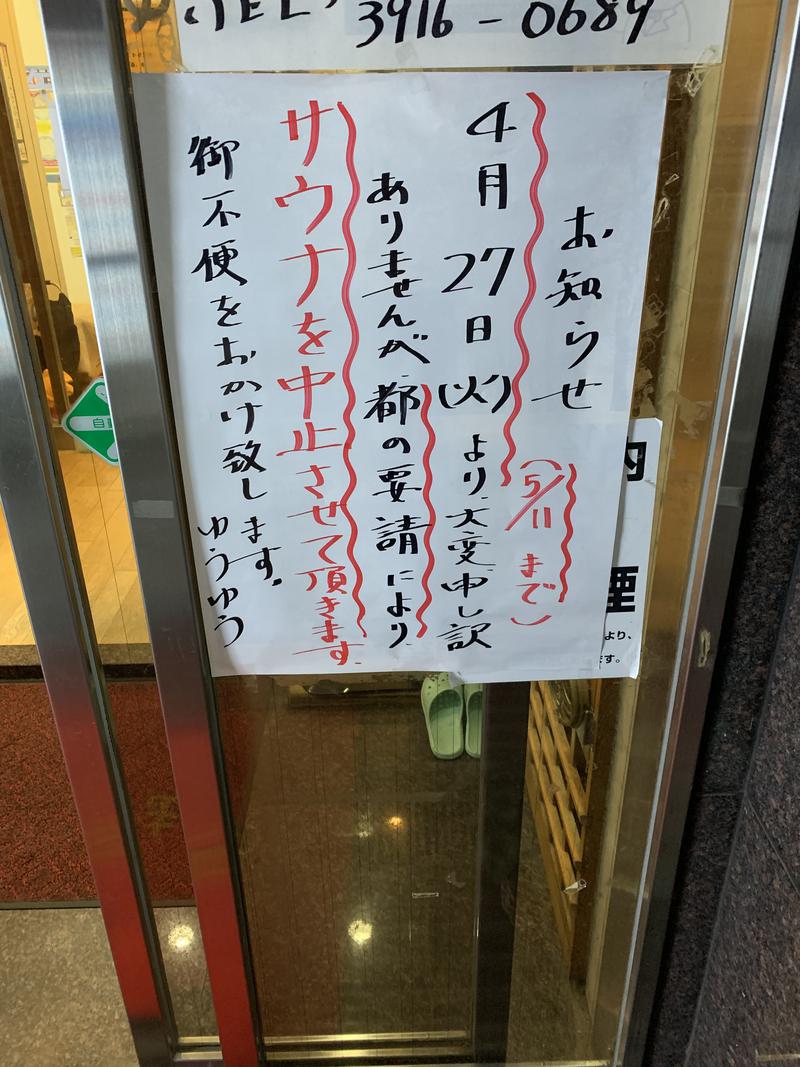 (TEL)
3916-0689
お知らせ
(5/11まで)
4月27日(火)より、大変申し訳
ありませんが、都の要請により、
サウナを中止させて頂きます。
御不便をおかけ致します。
ゆうゆう
内
煙
より、
す。
自動